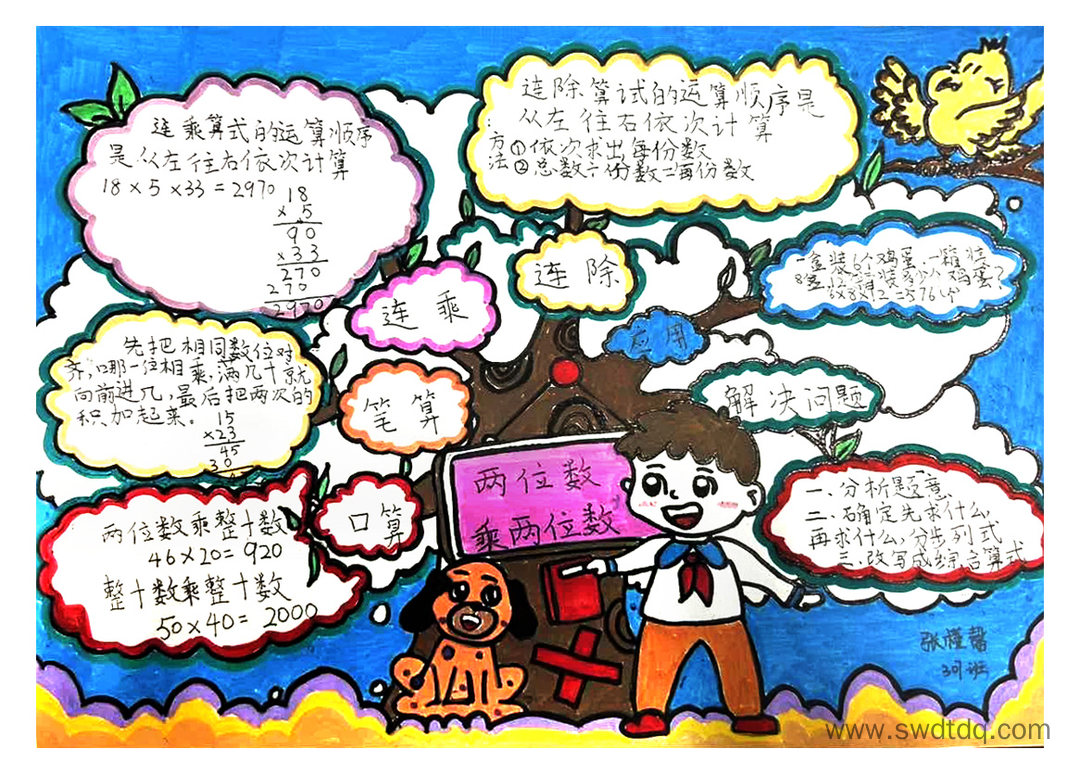 连乘算式的运算顺序
是从左往右依次计算
18×5×33=2970
18
×5
90
×33
270
270
2970
连除算试的运算顺序是
从左往右依次计算
方法①依次求出每份数
②总数÷份数=再份数
连除
连乘
一盒装6个鸡蛋,一箱装
8盒,12箱装多少个鸡蛋?
6×8×12=576个
应用
先把相同数位对
齐,哪一位相乘,满几十就
向前进几,最后把两次的
积加起来。
15
×23
45
30
笔算
解决问题
两位数
乘两位数
口算
两位数乘整十数
46×20=920
整十数乘整十数
50×40=2000
一、分析题意
二、确定先求什么,
再求什么,分步列式
三、改写成综合算式
张馨
301班
www.swdtdq.com